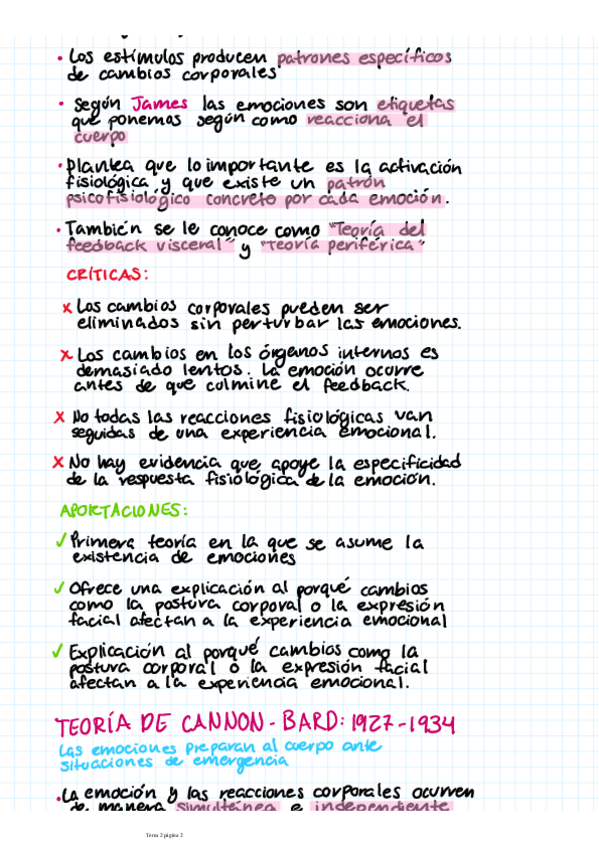 • Los estímulos producen patrones específicos
de cambios corporales
• Según James las emociones son etiquetas
que ponemos según como reacciona el
cuerpo
• Plantea que lo importante es la activación
fisiológica y que existe un patrón
psicofisiológico concreto por cada emoción.
• También se le conoce como "Teoría del
feedback visceral" y "Teoría periférica"
CRÍTICAS:
x Los cambios corporales pueden ser
eliminados sin perturbar las emociones.
x Los cambios en los órganos internos es
demasiado lentos. La emoción ocurre
antes de que culmine el feedback.
x No todas las reacciones fisiológicas van
seguidas de una experiencia emocional.
x No hay evidencia que apoye la especificidad
de la respuesta fisiológica de la emoción.
APORTACIONES:
✓ Primera teoría en la que se asume la
existencia de emociones
✓ Ofrece una explicación al porqué cambios
como la postura corporal o la expresión
facial afectan a la experiencia emocional
✓ Explicación al porqué cambios como la
postura corporal o la expresión facial
afectan a la experiencia emocional.
TEORÍA DE CANNON-BARD: 1927-1934
Las emociones preparan al cuerpo ante
situaciones de emergencia
• La emoción y las reacciones corporales ocurren
de manera simultánea e independiente
Tema 2 página 2